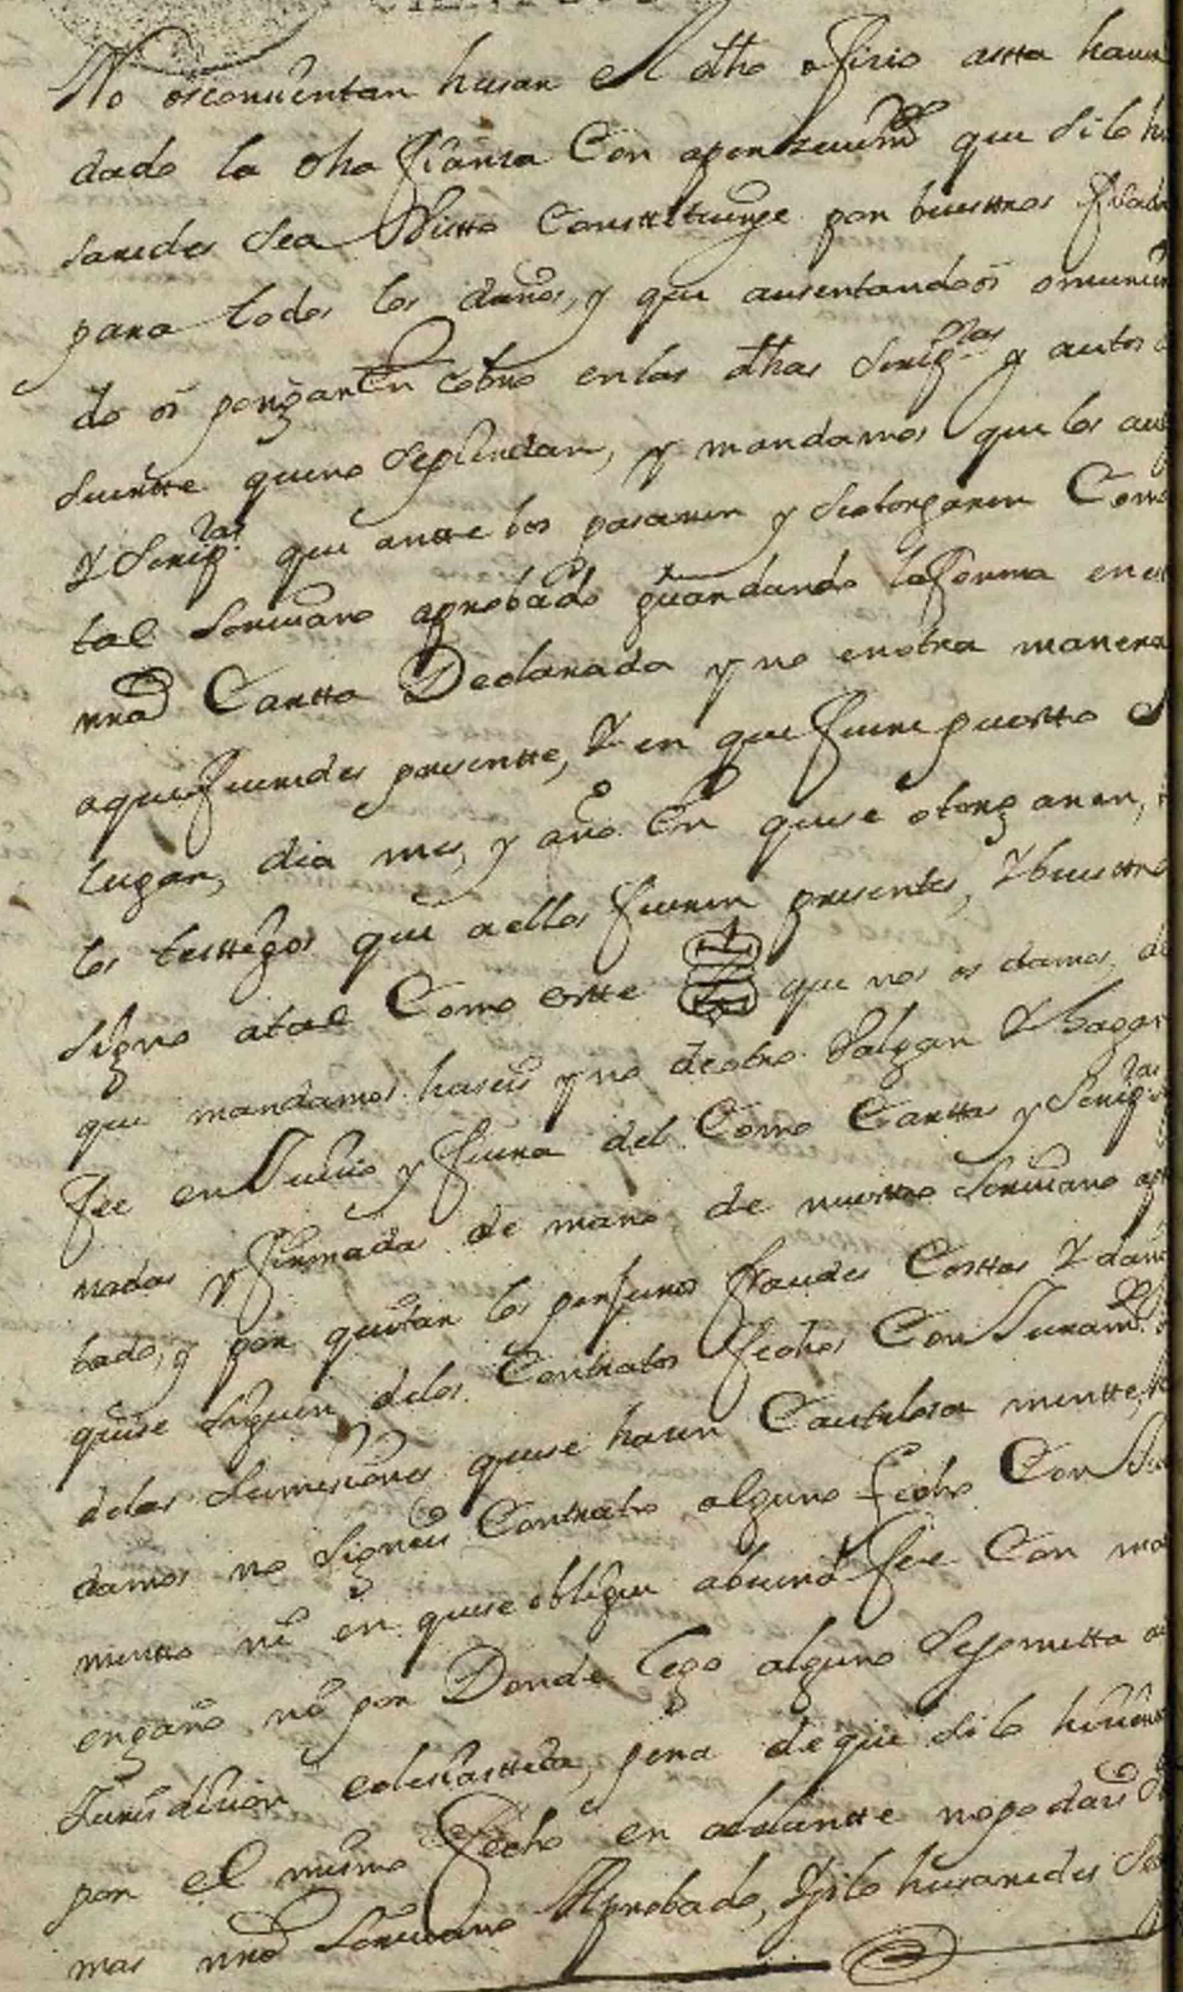 No osconsientan husar el dho ofisio astta haver
dado la dha fianza Con apersevim.to que silo hi
sieredes sea Visto Constituirse por buestros fiado
para todos los daños, y que ausentandoōs o murien
do ōs pongan en cobro en las dhas Scrip.ras y autos d
suertte que no sepierdan, y mandamos que los aut
Y Scrip.ras que antte bos pasaren y seotorgaren Como
tal Scriuano aprobado guardando la forma en es
nrā Cartta Declarada y no enotra manera
aque fueredes presentte, Y en que fuere puestto el
lugar, dia mes, y año En quese otorgaren,
los testtigos que aellos fueren presentes, Ybuesttro
signo atal Como estte que nos os damos, de
que mandamos haseis y no deotro Valgan Y hagan
fee en Juicio y fuera del Como Carttas y Scrip.ras
nadas y firmadas de mano de nuesttro Scriuano apro
bado, y por quitar los perjuros fraudes Costtas Y daños
quese siguen delos Contratos fechos Con Juram.to
delas sumisiones quese hacen Cautelosa mentte,
damos no signeis Contratto alguno fecho Con Ju
mentto ni en quese obligue abuena fee Con mal
engaño ni por Donde lego alguno Sesometta a
Jurisdicion eclesiasttica, pena deque silo hicier
por el mismo fecho en adelantte nopodais
mas nrō Scriuano Aprobado, Ysilo husaredes sea